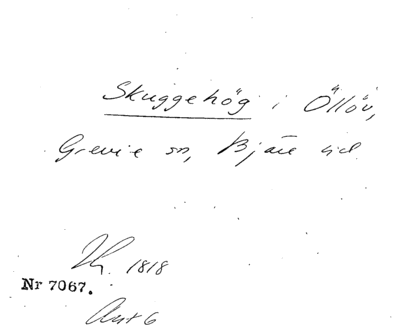 Skuggehög i Öllöv,
Grevie sn, Bjäre hd.
1818
Nr 7067.
Ant 6